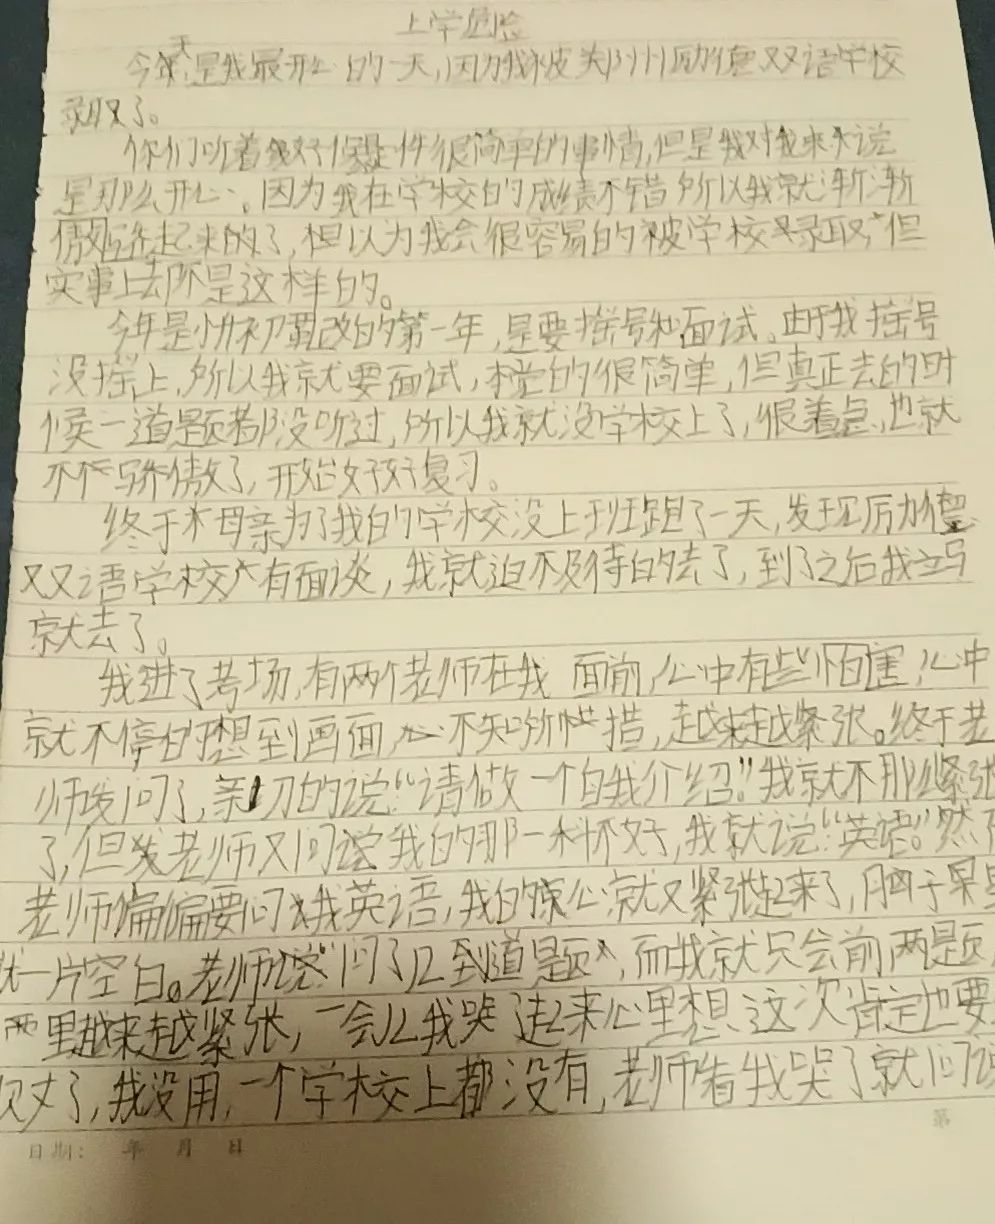 上学危险
今天是我最开心的一天,因为我被关郑州励德双语学校
录取了。
你们听着好像是件很简单的事情,但是我对我来来说
是那么开心。因为我在学校的成绩不错所以我就渐渐
骄傲起来的了,想以为我会很容易的被学校录取,但
实事上去不是这样的。
今年是小升初改的第一年,是要摇号和面试。由于我摇号
没摇上,所以我就要面试,本觉的很简单,但真正去的时
候一道题都没听过,所以我就没学校上了,很着急,也就
不骄傲了,开始好好复习。
终于母亲为了我的学校没上班跑了一天,发现励德
双语学校有面谈,我就迫不及待的去了,到了之后我立马
就去了。
我进了考场,有两个老师在我面前,心中有些怕害,心中
就不停的想到画面,不知所措,越来越紧张。终于老
师发问了,亲切的说:“请做一个自我介绍!”我就不那么紧张
了,但老师又问说我的那一科不好,我就说:“英语。”然
老师偏偏要问我英语,我的心就又紧张起来了,脑子里
就一片空白。老师问了几道题,而我就只会前两题,
里越来越紧张,一会儿我哭了起来心里想这次肯定也要
了,我没用,一个学校上都没有,老师看我哭了就问说
日期: 年 月 日
第